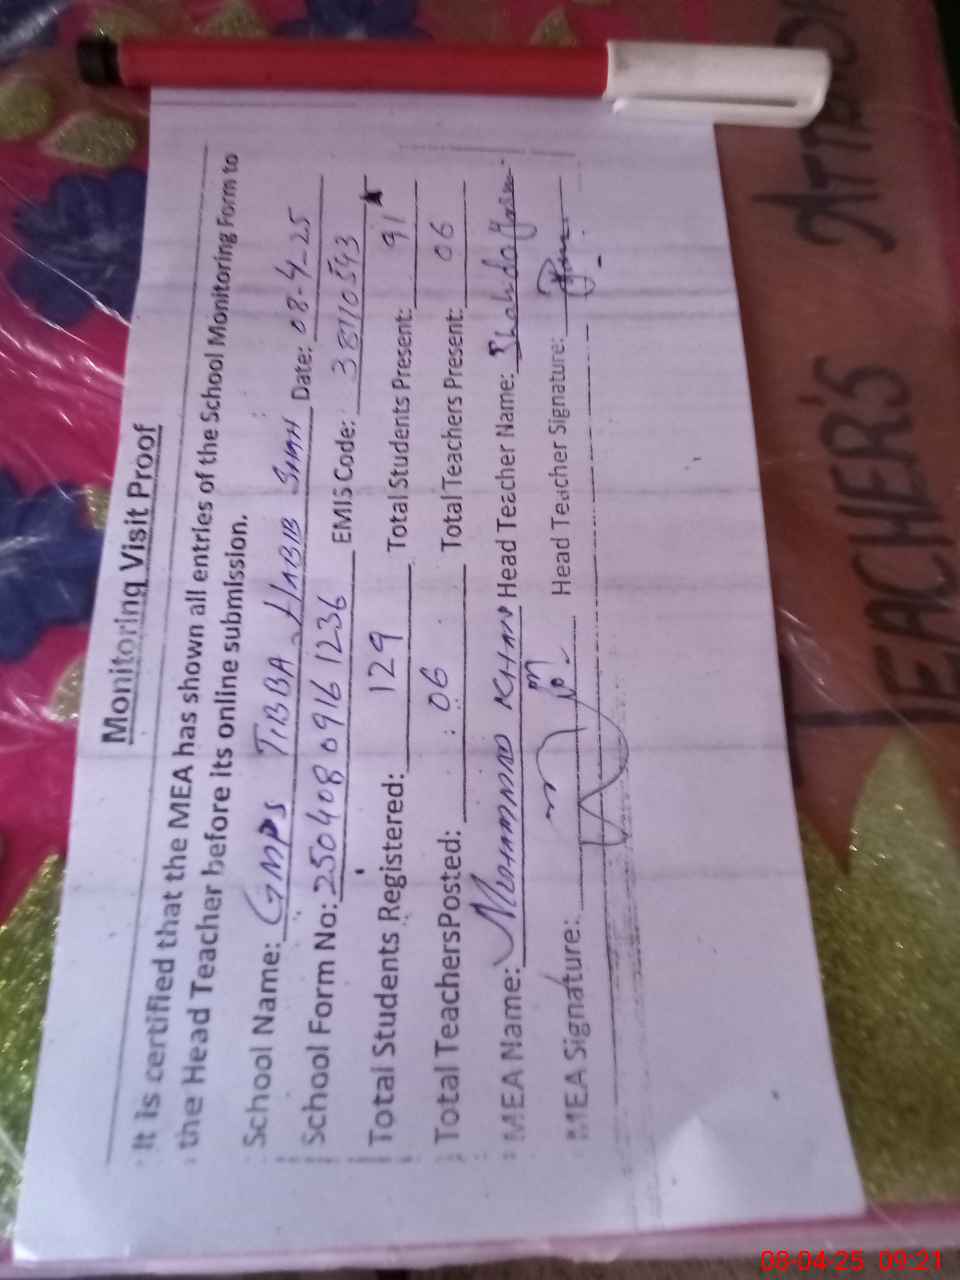 Monitoring Visit Proof
It is certified that the MEA has shown all entries of the School Monitoring Form to
the Head Teacher before its online submission.
School Name: GMPS TIBBA HABIB SHAH Date: 08-4-25
School Form No: 250408 0916 1236 EMIS Code: 38110593
Total Students Registered: 129 Total Students Present: 91
Total TeachersPosted: 06 Total Teachers Present: 06
MEA Name: MOHAMMAD KHAN Head Teacher Name: Shahida
MEA Signature: Head Teacher Signature:
TEACHER'S ATTEN
08-04-25 09:21